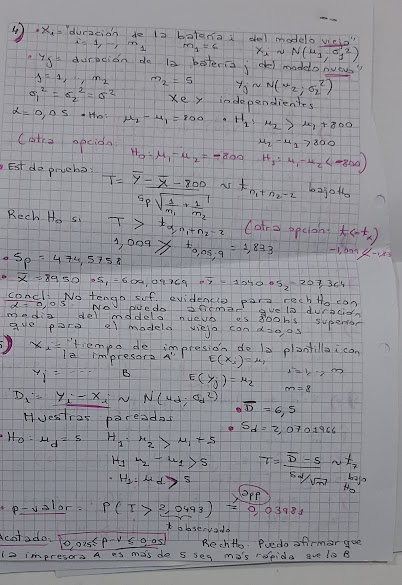 4) • Xi = "duración de la batería i del modelo viejo"
i = 1, , m1 m1 = 6 Xi ~ N(μ1, σ1²)
• Yj = duración de la batería j del modelo nuevo"
j = 1, , m2 m2 = 5 Yj ~ N(μ2; σ2²)
σ1² = σ2² = σ² X e Y independientes
α = 0,05 • H0: μ2 - μ1 = 800 • H1: μ2 > μ1 + 800
μ2 - μ1 > 800
(otra opción H0: μ1 - μ2 = -800 H1: μ1 - μ2 < -800)
• Est de prueba: T = Y̅ - X̅ - 800 / Sp √(1/m1 + 1/m2) ~ t n1+n2-2 bajo H0
Rech H0 si T > t α, n1+n2-2 (otra opción: t < -tα)
1,009 > t 0,05,9 = 1,833 -1,009 < -1,83
• Sp = 474,5758
• X̅ = 8950 • S1 = • S2 = 207,364
concl: No tengo suf evidencia para rech H0 con
α = 0,05 No puedo afirmar que la duración
media del modelo nuevo es 800hs superior
que para el modelo viejo con α = 0,05
5) Xi = "tiempo de impresión de la plantilla i con
la impresora A" E(Xi) = μ1
Yj = ---- B E(Yj) = μ2 i = 1, .., m
m = 8
Di = Yi - Xi ~ N(μd, σd²) • D̅ = 6,5
Muestras pareadas • Sd = 2,0701966
• H0: μd = 5 H1: μ2 > μ1 + 5
H1 μ2 - μ1 > 5 T = D̅ - 5 / Sd/√m ~ t7 bajo H0
• H1: μd > 5
• p-valor = P(T > 2,0493) = 0,03981 App
t observado
Acotado: 0,025 ≤ p-v ≤ 0,05 Rech H0. Puedo afirmar que
la impresora A es más de 5 seg más rápida que la B